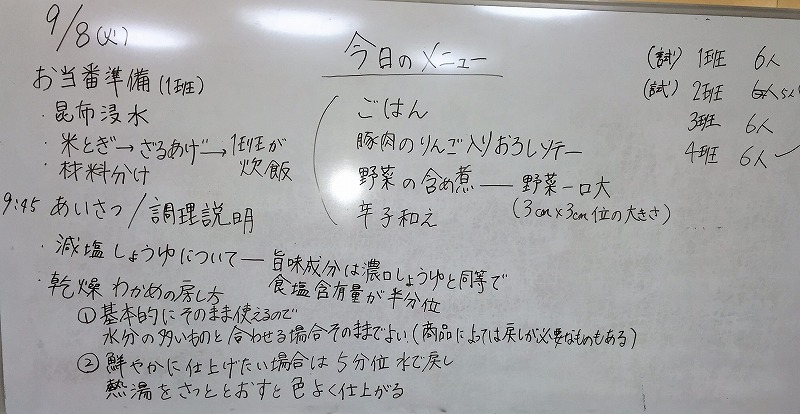 9/8(火)
お当番準備(1班)
・昆布浸水
・米とぎ→ざるあげ→1班が炊飯
・材料分け
9:45 あいさつ/調理説明
・減塩しょうゆについて―旨味成分は濃口しょうゆと同等で
食塩含有量が半分位
・乾燥わかめの戻し方
①基本的にそのまま使えるので
水分の多いものと合わせる場合そのままでよい(商品によっては戻しが必要なものもある)
②鮮やかに仕上げたい場合は5分位水で戻し
熱湯をさっととおすと色よく仕上がる
今日のメニュー
ごはん
豚肉のりんご入りおろしソテー
野菜の含め煮―野菜一口大
(3cm×3cm位の大きさ)
辛子和え
(試) 1班 6人
(試) 2班 5人
3班 6人
4班 6人